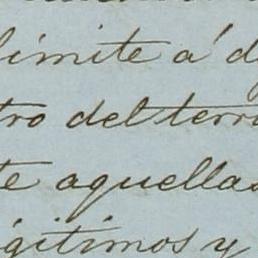 limite á d
tro del terri
te aquellas
gitimos y